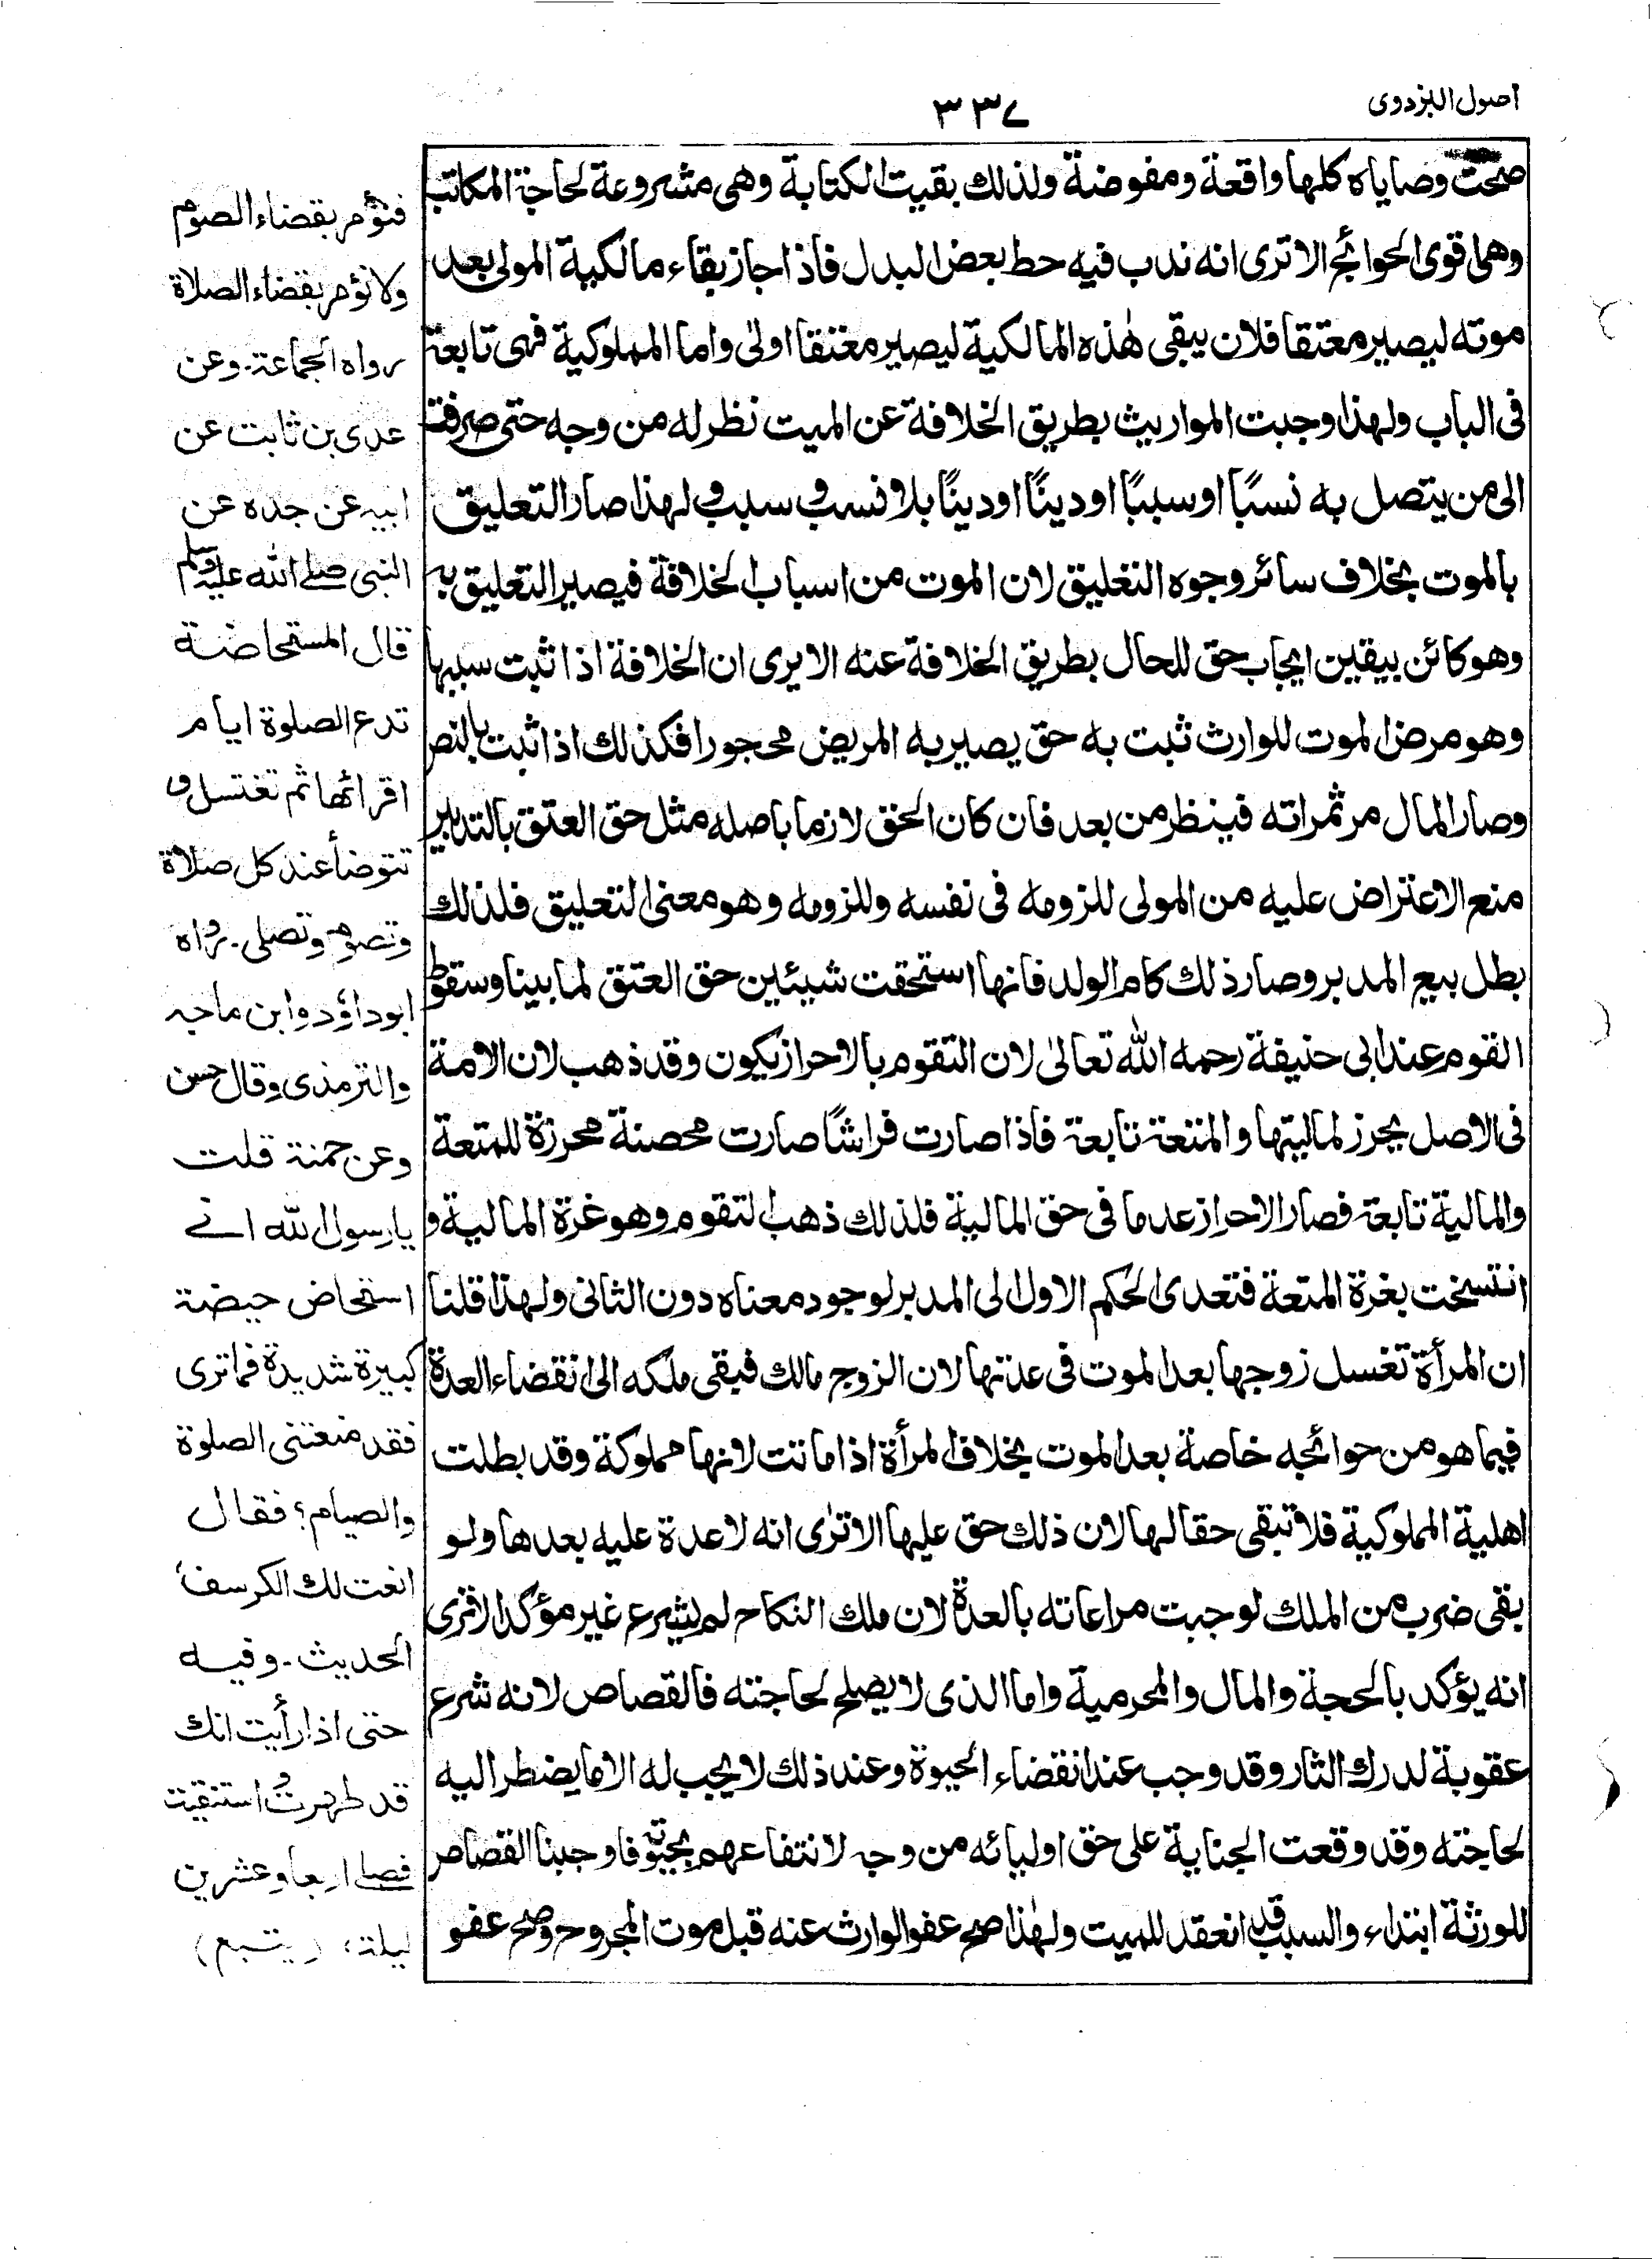 اصول البزدوی
۳۳۷
صحت وصاياه كلها واقعة ومفوضة ولذلك بقيت الكتابة وهى مشروعة لحاجة المكاتب
وهى اقوى الحوائج الا ترى انه ندب فيه حط بعض البدل فاذا جاز بقاء مالكية المولى بعد
موته ليصير معتقا فلان يبقى هٰذه المالكية ليصير معتقا اولىٰ واما المملوكية فهى تابعة
فى الباب ولهذا وجبت المواريث بطريق الخلافة عن الميت نظرله من وجه حتى صرفت
الى من يتصل به نسبًا او سببًا او دينًا او دينًا بلا نسب و سبب و لهذا صار التعليق
بالموت بخلاف سائر وجوه التعليق لان الموت من اسباب الخلافة فيصير التعليق به
وهو كائن بيقين ايجاب حق للحال بطريق الخلافة عنه الا يرى ان الخلافة اذا ثبت سببها
وهو مرض الموت للوارث ثبت به حق يصير به المريض محجورا فكذلك اذا ثبت بالنص
وصار المال من ثمراته فينظر من بعد فان كان الحق لازما باصله مثل حق العتق بالتدبير
منع الاعتراض عليه من المولى للزومه فى نفسه وللزومه وهو معنى التعليق فلذلك
بطل بيع المدبر وصار ذلك كام الولد فانها استحقت شيئين حق العتق لما بينا وسقوط
القوم عند ابى حنيفة رحمه الله تعالىٰ لان التقوم بالاحراز يكون وقد ذهب لان الامة
فى الاصل يحرز لماليتها والمتعة تابعة فاذا صارت فراشًا صارت محصنة محرزة للمتعة
والمالية تابعة فصار الاحراز عدما فى حق المالية فلذلك ذهب التقوم وهو غرة المالية و
انتسخت بغرة المتعة فتعدى الحكم الاول الى المدبر لوجود معناه دون الثانى ولهذا قلنا
ان المرأة تغسل زوجها بعد الموت فى عدتها لان الزوج مالك فيبقى ملكه الى انقضاء العدة
فيما هو من حوائجه خاصة بعد الموت بخلاف المرأة اذا ماتت لانها مملوكة وقد بطلت
اهلية المملوكية فلا تبقى حقا لها لان ذلك حق عليها الا ترى انه لا عدة عليه بعدها ولو
بقى ضرب من الملك لوجبت مراعاته بالعدة لان ملك النكاح لم يشرع غير مؤكد الا ترى
انه يؤكد بالحجة والمال والمحرمية واما الذى لا يصلح لحاجته فالقصاص لانه شرع
عقوبة لدرك الثار وقد وجب عند انقضاء الحيوة وعند ذلك لا يجب له الا ما يضطر اليه
لحاجته وقد وقعت الجناية على حق اوليائه من وجه لانتفاعهم بحيوته فاوجبنا القصاص
للورثة ابتداء والسبب قد انعقد للميت ولهٰذا صح عفو الوارث عنه قبل موت المجروح وصح عفو
فنؤمر بقضاء الصوم
ولا نؤمر بقضاء الصلاة
رواه الجماعة۔ وعن
عدى بن ثابت عن
ابيه عن جده عن
النبى صلى الله عليه وسلم
قال المستحاضة
تدع الصلوة ايام
اقرائها ثم تغتسل و
تتوضأ عند كل صلاة
وتصوم وتصلى۔ رواه
ابوداؤد وابن ماجه
والترمذى وقال حسن
وعن حمنة قلت
يا رسول الله انى
استحاض حيضة
كبيرة شديدة فما ترى
فقد منعتنى الصلوة
والصيام؟ فقال
انعت لك الكرسف،
الحديث۔ وفيه
حتى اذا رأيت انك
قد طهرت و استنقيت
فصلى اربعا وعشرين
ليلة، (يتبع)